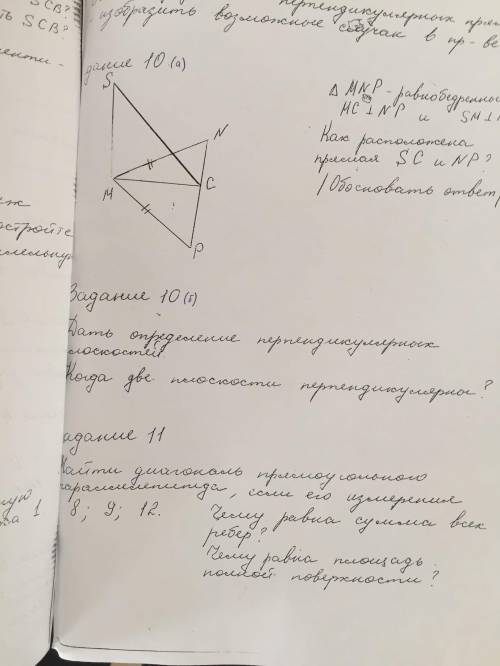 SCB?
SCB?
перпендикулярных
изобразить возможные случаи в пр-ве
дание 10(а)
S
N
M
C
P
Δ MNP - равнобедренный
MC ⊥ NP и SM ⊥
Как расположена
прямая SC и NP?
/Обосновать ответ/
Задание 10(б)
Дать определение перпендикулярных
плоскостей
Когда две плоскости перпендикулярны?
адание 11
Найти диагональ прямоугольного
параллелепипеда, если его измерения
8; 9; 12.
Чему равна сумма всех
ребер?
Чему равна площадь
полной поверхности?